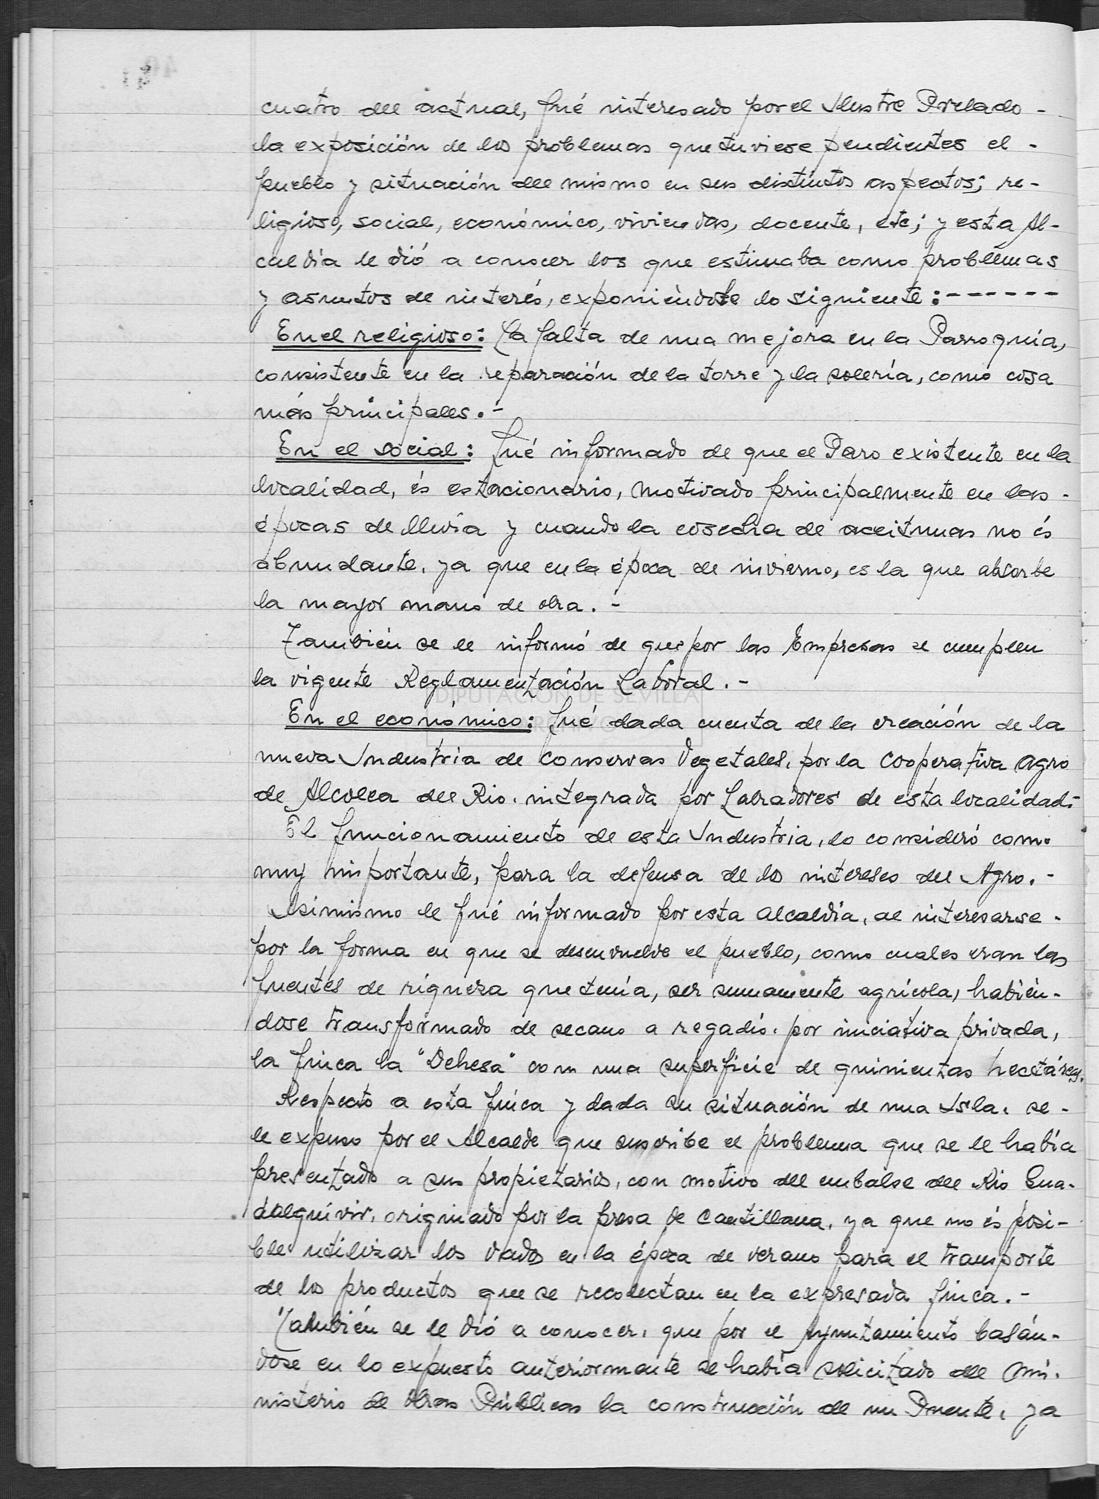 cuatro del actual, fué interesado por el Ilustre Prelado -
la exposición de los problemas que tuviese pendientes el -
pueblo y situación del mismo en sus distintos aspectos; re-
ligioso, social, económico, viviendas, docente, etc; y esta Al-
caldía le dió a conocer los que estimaba como problemas
y asuntos de interés, exponiéndole lo siguiente: - - - - - -
En el religioso: La falta de una mejora en la Parroquia,
consistente en la reparación de la torre y la solería, como cosa
más principales. -
En el social: Fué informado de que el Paro existente en la
localidad, és estacionario, motivado principalmente en las -
épocas de lluvia y cuando la cosecha de aceitunas no és
abundante, ya que en la época de invierno, es la que absorbe
la mayor mano de obra. -
También se le informó de que por las Empresas se cumplen
la vigente Reglamentación Laboral. -
DIPUTACIÓN DE SEVILLA
En el económico: Fué dada cuenta de la creación de la
nueva Industria de Conservas Vegetales, por la Cooperativa Agro
de Alcolea del Rio, integrada por Labradores de esta localidad.-
El funcionamiento de esta Industria, lo consideró como
muy importante, para la defensa de los intereses del Agro. -
Asimismo le fué informado por esta Alcaldía, al interesarse -
por la forma en que se desenvuelve el pueblo, como cuales eran las
fuentes de riqueza que tenía, ser sumamente agrícola, habién-
dose transformado de secano a regadío, por iniciativa privada,
la finca la "Dehesa" con una superficie de quinientas hectáreas.
Respecto a esta finca y dada su situación de una Isla, se -
le expuso por el Alcalde que suscribe el problema que se le había
presentado a sus propietarios, con motivo del embalse del Rio Gua-
dalquivir, originado por la presa de Cantillana, ya que no és posi-
ble utilizar los vados en la época de verano para el transporte
de los productos que se recolectan en la expresada finca. -
También se le dió a conocer, que por el Ayuntamiento basán-
dose en lo expuesto anteriormente se había solicitado del Mi-
nisterio de Obras Públicas la construcción de un Puente, ya